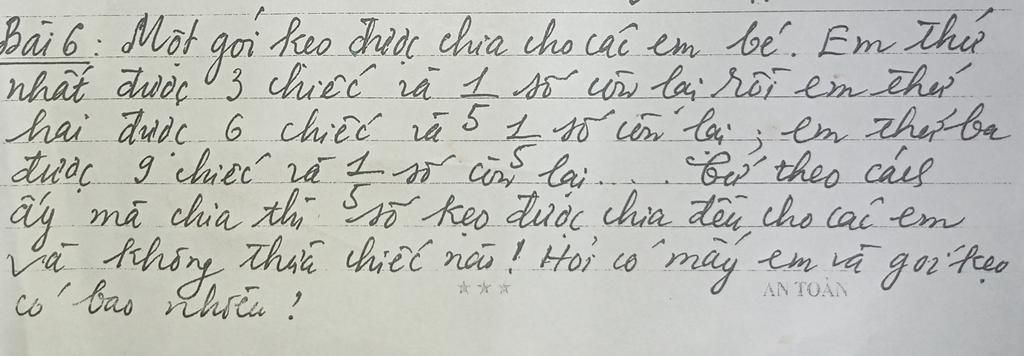 Bài 6: Một gói kẹo được chia cho các em bé. Em thứ
nhất được 3 chiếc và 1/5 số còn lại rồi em thứ
hai được 6 chiếc và 1/5 số còn lại; em thứ ba
được 9 chiếc và 1/5 số còn lại.... Cứ theo cách
ấy mà chia thì số kẹo được chia đều cho các em
và không thừa chiếc nào! Hỏi có mấy em và gói kẹo
có bao nhiêu?
★★★ AN TOÀN